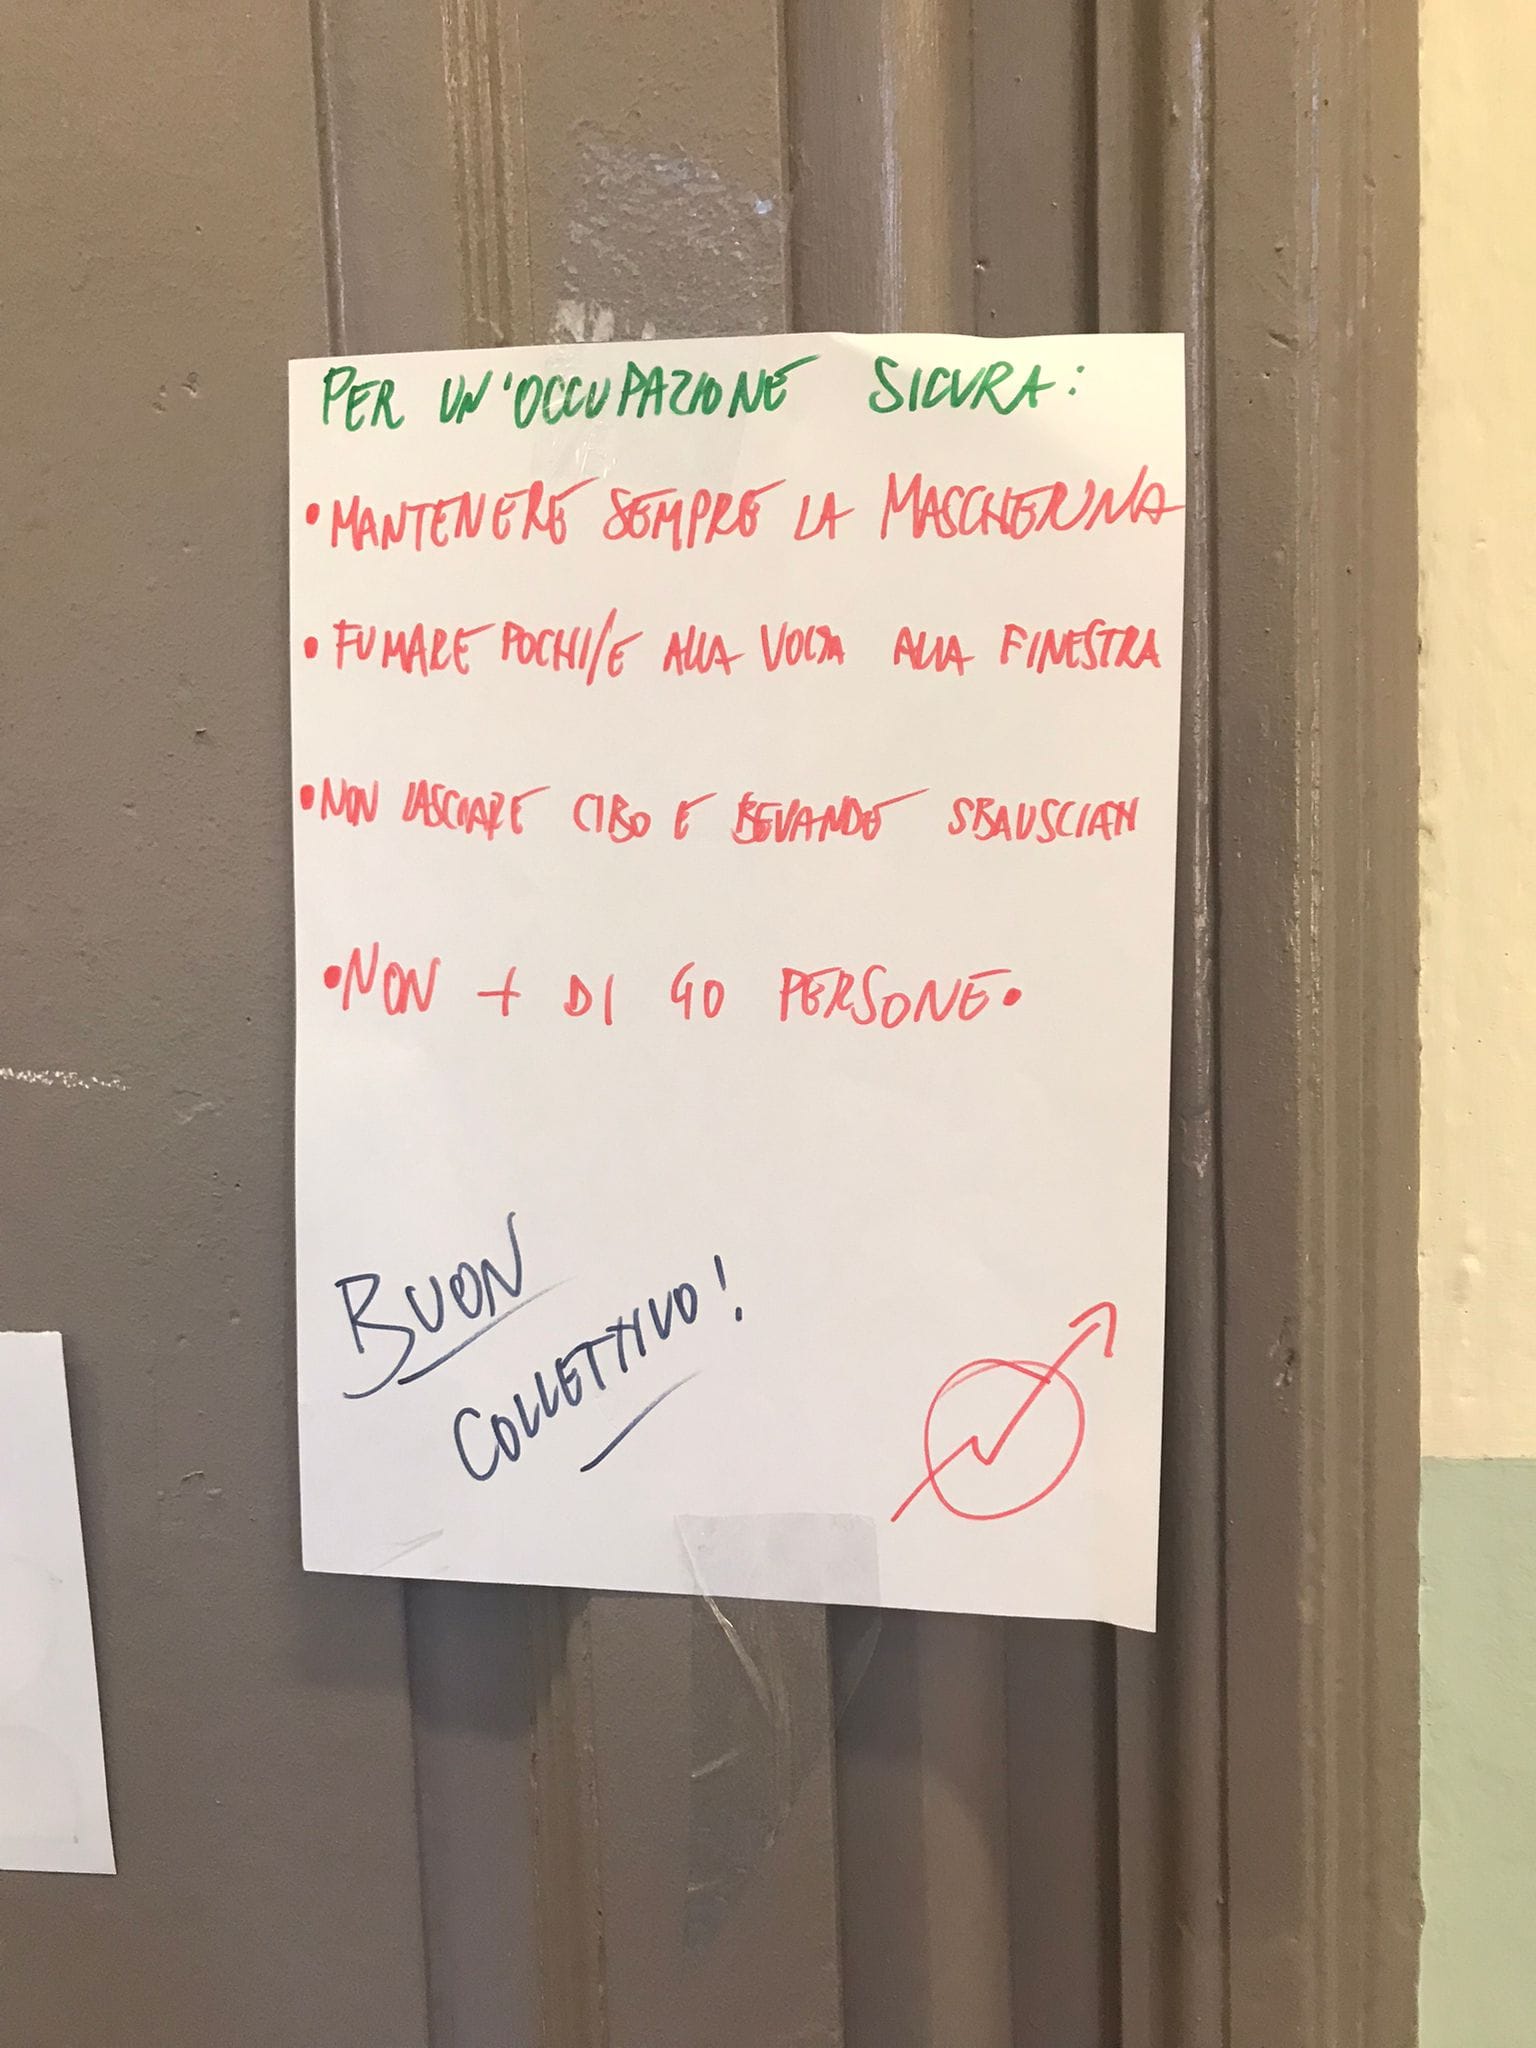 PER UN'OCCUPAZIONE SICURA:
• MANTENERE SEMPRE LA MASCHERINA
• FUMARE POCHI/E ALLA VOLTA ALLA FINESTRA
• NON LASCIARE CIBO E BEVANDE SBAUSCIATI
• NON + DI 40 PERSONE •
BUON
COLLETTIVO!